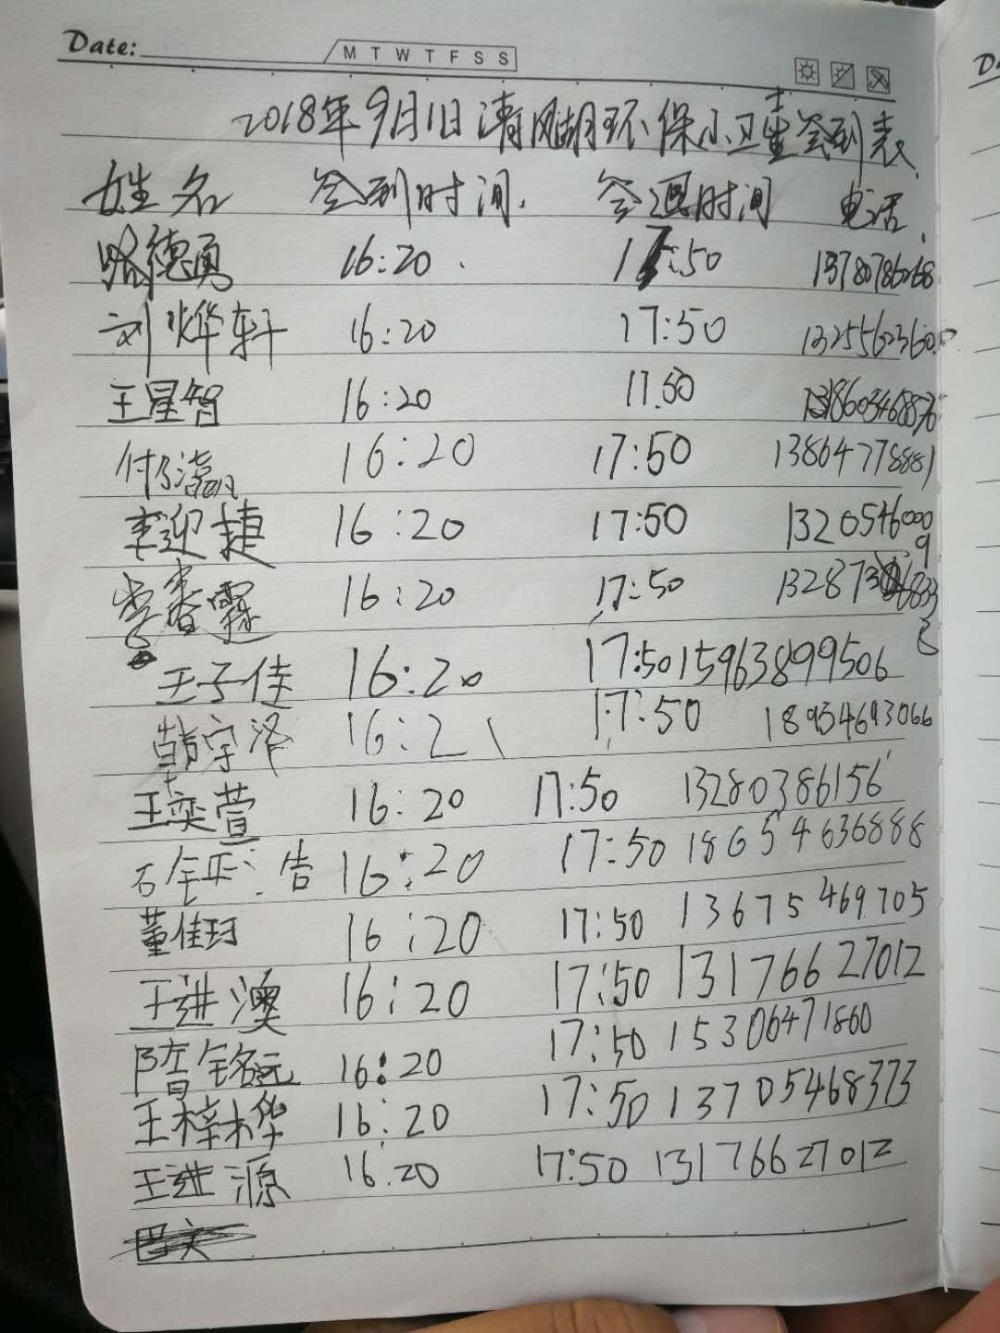 Date:
M T W T F S S
2018年9月1日清风湖环保小卫士签到表
姓名 签到时间. 签退时间 电话.
德勇 16:20 17:50 13780786068
刘烨轩 16:20 17:50
王星智 16:20 17.50
付 16:20 17:50 13864778881
李迎捷 16:20 17:50 13205460009
16:20 17:50
王子佳 16:20 17:50 15963899506
韩宇泽 16:21 17:50 18954693066
王奕萱 16:20 17:50 13280386156
16:20 17:50 18654636888
董佳玥 16:20 17:50 13675469705
王进澳 16:20 17:50 13176627012
隋铭远 16:20 17:50 15306471860
王梓桦 16:20 17:50 13705468373
王进源 16:20 17:50 13176627012